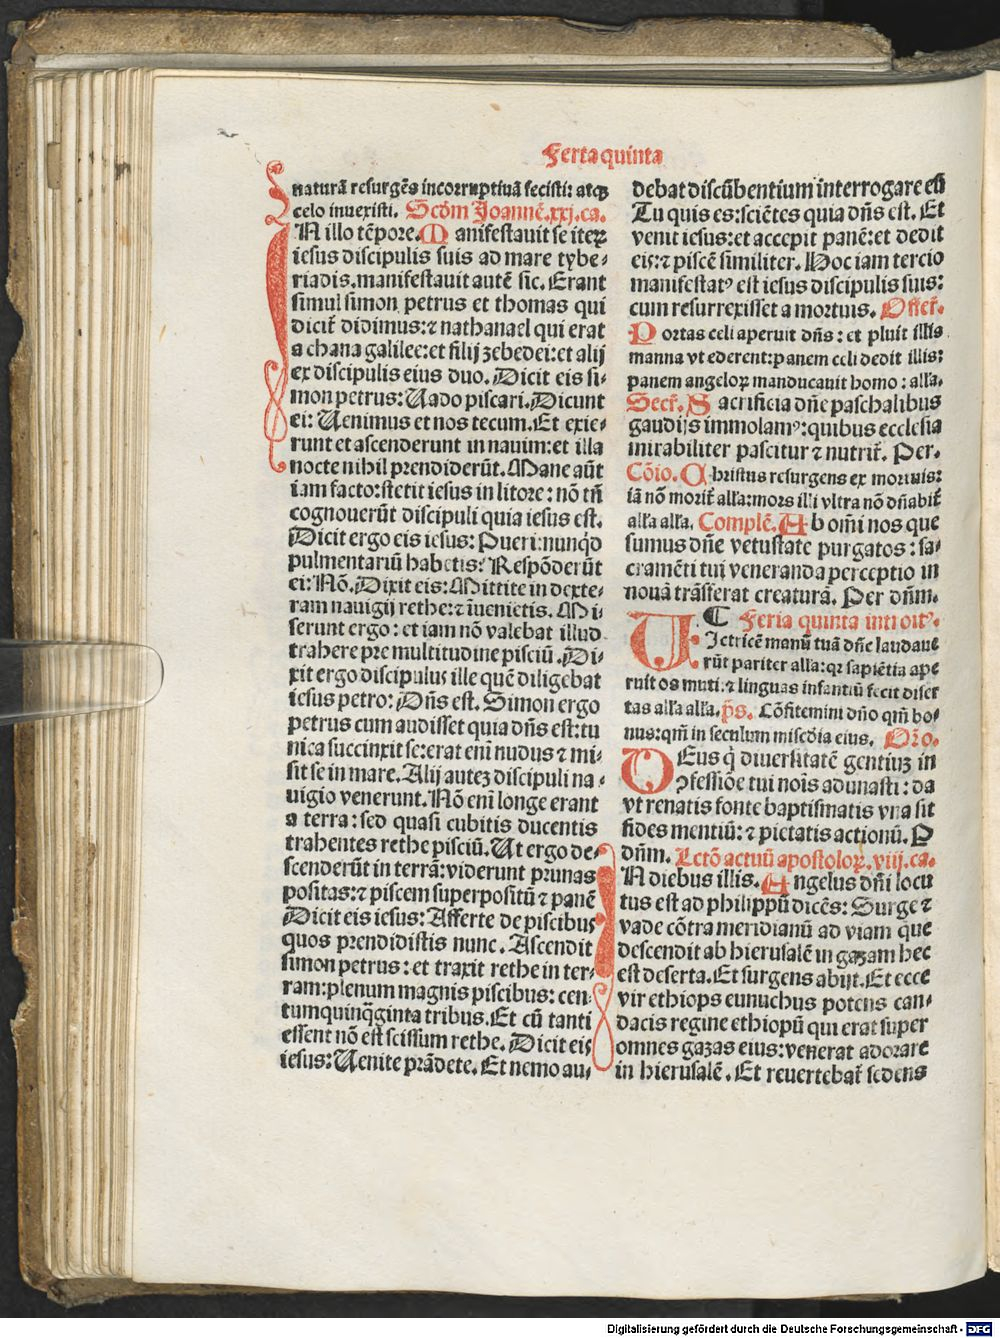 Feria quinta
naturā resurgēs incorruptiuā fecisti: atqꝫ
celo inuexisti. Scďm Joannē.xxj.ca.
IN illo tēpore. Manifestauit se iteꝝ
iesus discipulis suis ad mare tybe-
riadis.manifestauit autē sic. Erant
simul simon petrus et thomas qui
dicit̄ didimus:⁊ nathanael qui erat
a chana galilee:et filij zebedei:et alij
ex discipulis eius duo. Dicit eis si-
mon petrus: Uado piscari. Dicunt
ei: Uenimus et nos tecum. Et exie-
runt et ascenderunt in nauim: et illa
nocte nihil prendiderūt. Mane aūt
iam facto: stetit iesus in litore: nō tn̄
cognouerūt discipuli quia iesus est.
Dicit ergo eis iesus: Pueri: nunqd
pulmentariū habetis? Respōderūt
ei: Nō. Dixit eis: Mittite in dexte-
ram nauigij rethe:⁊ īuenietis. Mi-
serunt ergo: et iam nō valebat illud
trahere pre multitudine pisciū. Di-
xit ergo discipulus ille quē diligebat
iesus petro: Dn̄s est. Simon ergo
petrus cum audisset quia dn̄s est: tu
nica succinxit se: erat eni nudus ⁊ mi-
sit se in mare. Alij autez discipuli na-
uigio venerunt. Nō eni longe erant
a terra: sed quasi cubitis ducentis
trahentes rethe pisciū. Ut ergo de-
scenderūt in terrā: viderunt prunas
positas:⁊ piscem superpositū ⁊ panē
Dicit eis iesus: Afferte de piscibus
quos prendidistis nunc. Ascendit
simon petrus: et traxit rethe in ter-
ram: plenum magnis piscibus: cen-
tumquinq̄ginta tribus. Et cū tanti
essent nō est scissum rethe. Dicit eis
iesus: Uenite prādete. Et nemo au-
debat discūbentium interrogare eū
Tu quis es: sciētes quia dn̄s est. Et
venit iesus: et accepit panē: et dedit
eis:⁊ piscē similiter. Hoc iam tercio
manifestatꝰ est iesus discipulis suis:
cum resurrexisset a mortuis. Offert̄.
Portas celi aperuit dn̄s: et pluit illis
manna vt ederent: panem celi dedit illis:
panem angeloꝝ manducauit homo: alła.
Secret̄. Sacrificia dn̄e paschalibus
gaudijs immolamꝰ: quibus ecclesia
mirabiliter pascitur ⁊ nutrit̄. Per.
Cōio. Christus resurgens ex mortuis:
iā nō morit̄ alła: mors illi vltra nō dn̄abit̄
alła alła. Complē. Ab om̄i nos que
sumus dn̄e vetustate purgatos: sa-
cramēti tui veneranda perceptio in
nouā trāsferat creaturā. Per dn̄m.
¶ Feria quinta introitꝰ.
UIctricē manū tuā dn̄e laudaue
rūt pariter alła: qꝛ sapiētia ape
ruit os muti:⁊ linguas infantiū fecit diser
tas alła alła. p̄s. Cōfitemini dn̄o qm̄ bo-
nus: qm̄ in seculum misc̄dia eius. Or̄o.
DEus q̇ diuersitatē gentiuz in
ꝯfessiōe tui noīs adunasti: da
vt renatis fonte baptismatis vna sit
fides mentiū:⁊ pietatis actionū. P
dn̄m. Lectō actuū apostoloꝝ.viij.ca.
IN diebus illis. Angelus dn̄i locu
tus est ad philippū dicēs: Surge ⁊
vade cōtra meridianū ad viam que
descendit ab hierusalē in gazam hec
est deserta. Et surgens abijt. Et ecce
vir ethiops eunuchus potens can-
dacis regine ethiopū qui erat super
omnes gazas eius: venerat adorare
in hierusalē. Et reuertebat̄ sedens
Digitalisierung gefördert durch die Deutsche Forschungsgemeinschaft - DFG